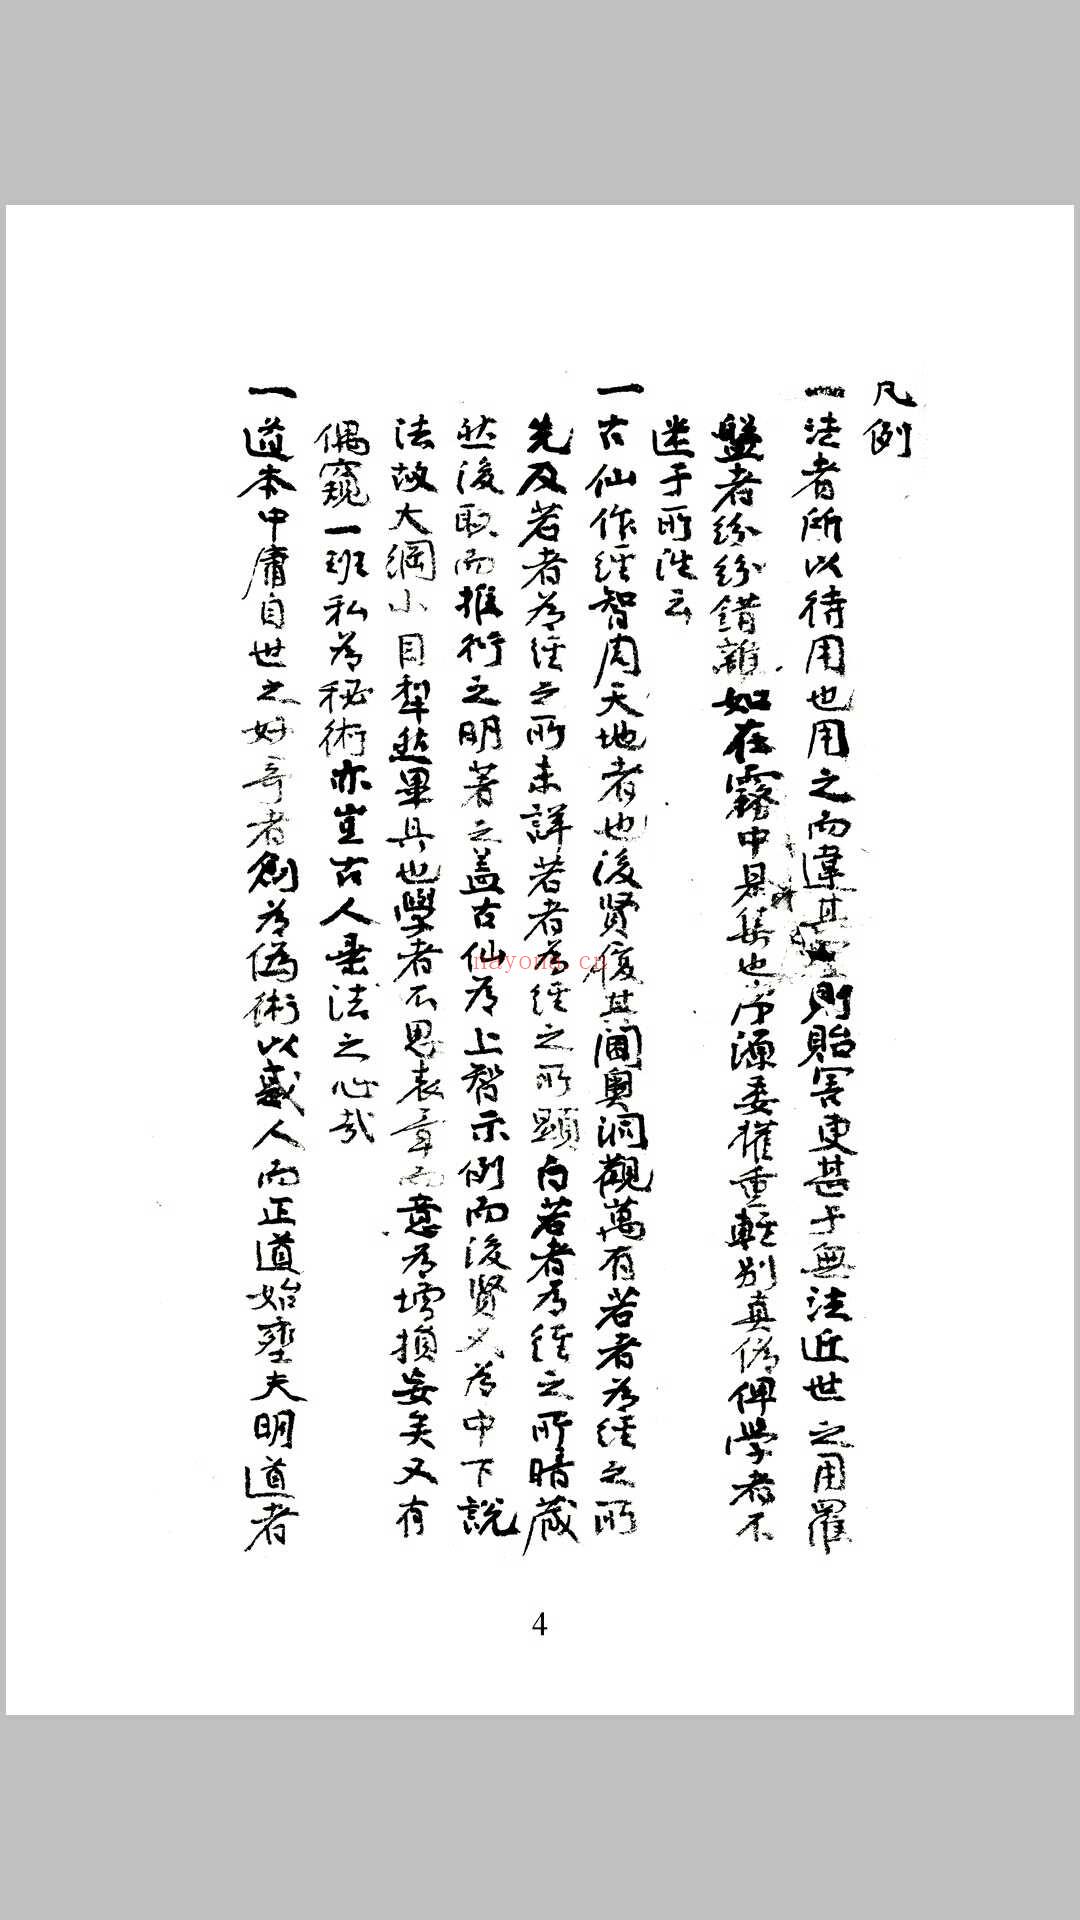 凡例
一法者所以待用也用之而違其則貽害更甚于無法近世之用羅
盤者紛紛錯雜如在霧中是集也泝源委權重輕別真偽俾學者不
迷于所從云
一古仙作經智周天地者也後賢復其閫奧洞觀萬有若者為經之所
先及若者為經之所未詳若者為經之所顯白若者為經之所暗藏
然後取而推衍之明著之盖古仙為上智示例而後賢又為中下說
法故大綱小目犁然畢具也學者不思表章而意為增損妄矣又有
偶窺一班私為秘術亦豈古人垂法之心哉
一道本中庸自世之好奇者創為偽術以惑人而正道始壅夫明道者
nayona.cn
4